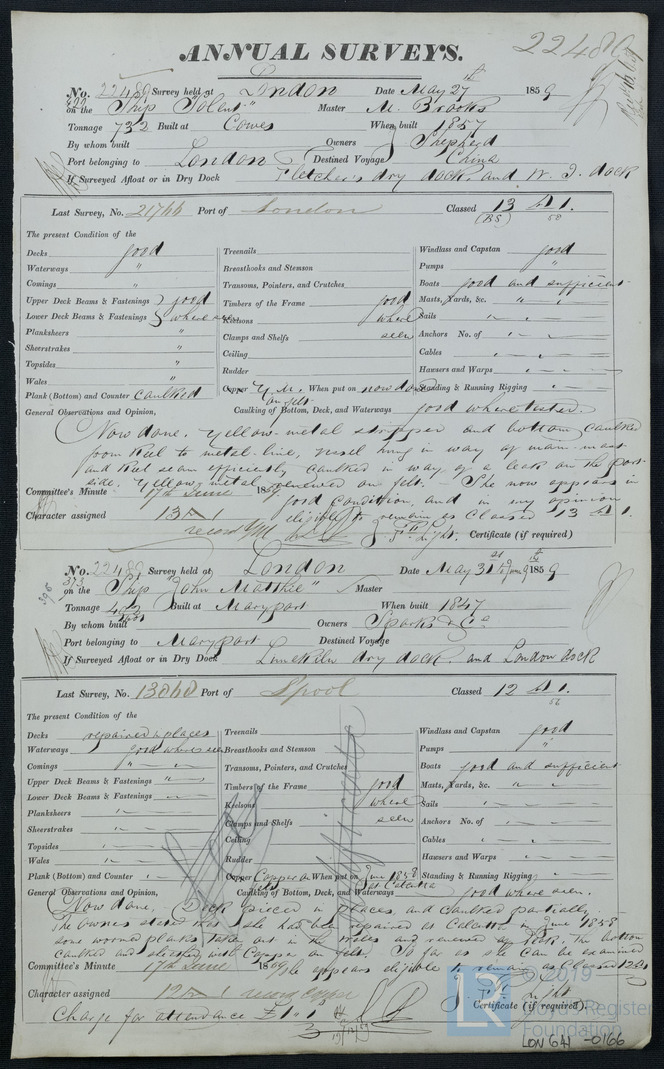 22489
ANNUAL SURVEYS.
No. 22489 Survey held at London Date May 27th 1859
on the Ship "Solent" Master M. Brooks
Tonnage 732 Built at Cowes When built 1857
By whom built Owners Shepherd
Port belonging to London Destined Voyage China
If Surveyed Afloat or in Dry Dock Fletcher's dry dock, and W. I. dock
Last Survey, No. 21766 Port of London Classed 13 A 1.
(BS) 58
The present Condition of the
Decks good Treenails Windlass and Capstan good
Waterways " Breasthooks and Stemson Pumps "
Comings " Transoms, Pointers, and Crutches Boats good and sufficient
Upper Deck Beams & Fastenings } good Timbers of the Frame good Masts, Yards, &c. " "
Lower Deck Beams & Fastenings } where seen Keelsons where Sails
Planksheers " Clamps and Shelfs seen Anchors No. of
Sheerstrakes " Ceiling Cables
Topsides " Rudder Hawsers and Warps
Wales " Copper Y. M. When put on now done Standing & Running Rigging
on felt
Plank (Bottom) and Counter caulked Caulking of Bottom, Deck, and Waterways good where tested.
General Observations and Opinion,
Now done, Yellow metal stripped and bottom caulked
from keel to metal line, vessel hung in way of main mast
and keel seam efficiently caulked in way of a leak on the port
side. Yellow metal renewed on felt. She now appears in
good condition, and in my opinion
eligible to remain as Classed 13 A 1.
Committee's Minute 17th June 1859
Character assigned 13 A 1
record YM
Certificate (if required)
No. 22489 Survey held at London Date May 31st 1859
on the Ship "John Matthie" Master
Tonnage Built at Maryport When built 1847
By whom built Owners Sparks & Co
Port belonging to Maryport Destined Voyage
If Surveyed Afloat or in Dry Dock Limekiln dry dock, and London dock
Last Survey, No. 13040 Port of Lpool Classed 12 A 1.
56
The present Condition of the
Decks repaired in places Treenails Windlass and Capstan good
Waterways good where seen Breasthooks and Stemson Pumps "
Comings " Transoms, Pointers, and Crutches Boats good and sufficient
Upper Deck Beams & Fastenings " Timbers of the Frame good Masts, Yards, &c. "
Lower Deck Beams & Fastenings Keelsons where Sails
Planksheers " Clamps and Shelfs seen Anchors No. of
Sheerstrakes " Ceiling Cables
Topsides " Rudder Hawsers and Warps
Wales "
Plank (Bottom) and Counter " Copper Copper When put on June 1858 Standing & Running Rigging
at Calcutta
General Observations and Opinion, Caulking of Bottom, Deck, and Waterways good where seen.
Now done, Deck pieced in places and caulked partially.
The owner states that she had been repaired at Calcutta in June 1858
some wormed planks take out in the and renewed the bottom
caulked and sheathed with Copper on felt. So far as she can be examined
she appears eligible to remain as classed 12 A 1
Committee's Minute 17th June 1859
Character assigned 12 A 1
Certificate (if required).
Charge for attendance £1"1
© 2019
LR
Lloyd's Register
Foundation
LON 641 -0166